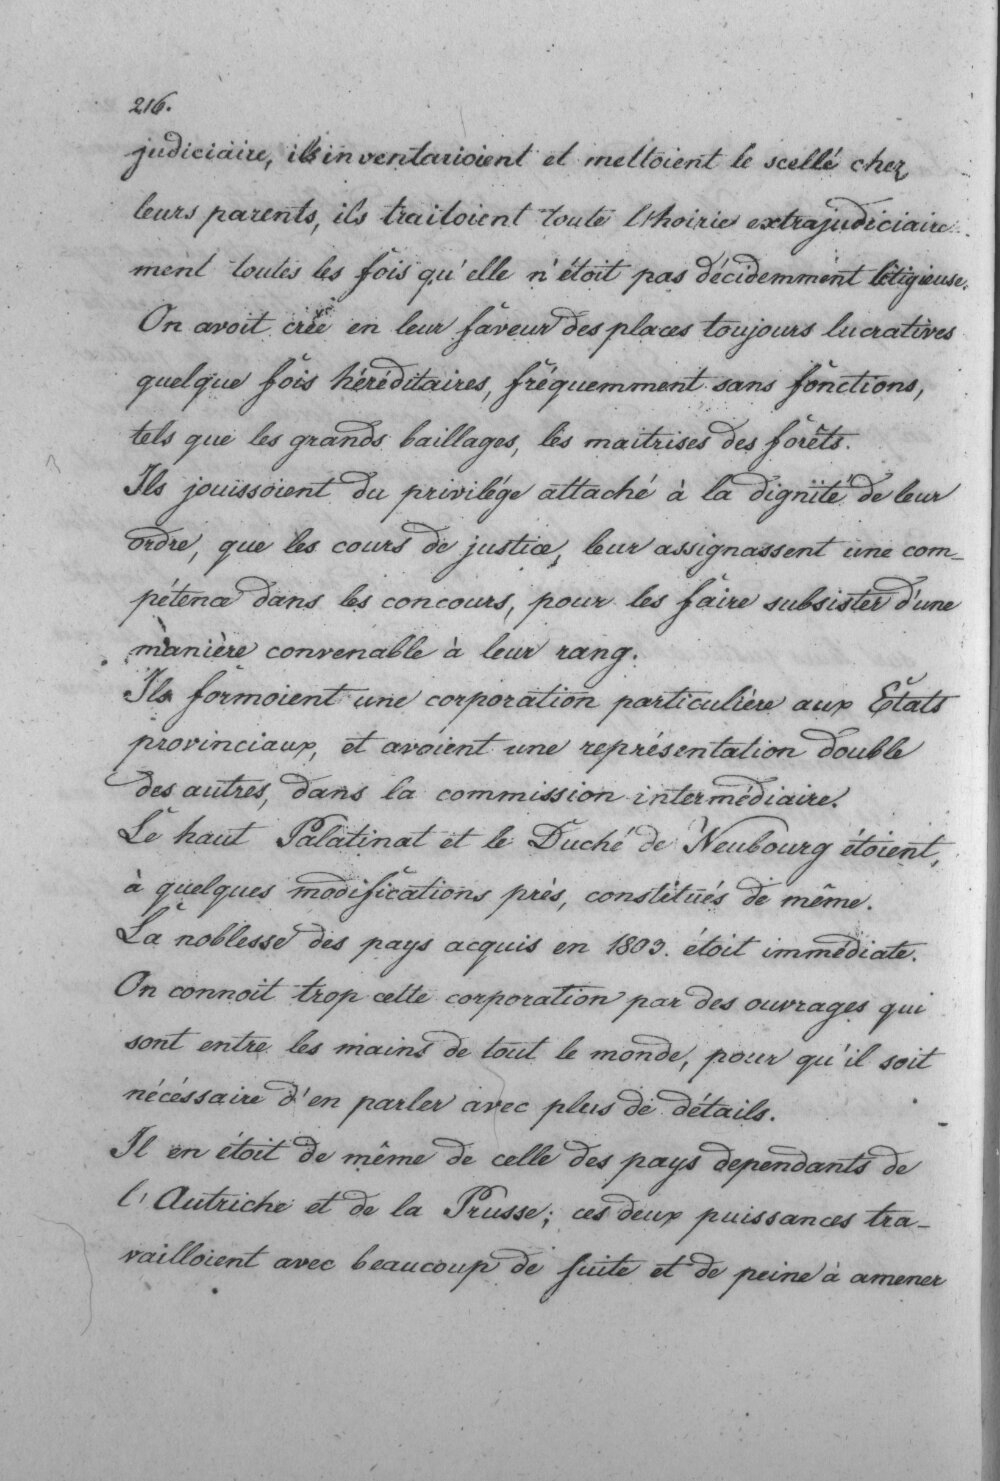 216.
judiciaire, ils inventarioient et mettoient le scellé chez
leurs parents, ils traitoient toute l'hoirie extrajudiciaire-
ment toutes les fois qu'elle n'étoit pas décidemment litigieuse.
On avoit créé en leur faveur des places toujours lucratives
quelque fois héréditaires, fréquemment sans fonctions,
tels que les grands baillages, les maitrises des forêts.
Ils jouissoient du privilége attaché à la dignité de leur
ordre, que les cours de justice, leur assignassent une com-
pétence dans les concours, pour les faire subsister d'une
manière convenable à leur rang.
Ils formoient une corporation particulière aux Etats
provinciaux, et avoient une représentation double
des autres, dans la commission intermédiaire.
Le haut Palatinat et le Duché de Neubourg étoient,
à quelques modifications près, constitués de même.
La noblesse des pays acquis en 1803. étoit immédiate.
On connoit trop cette corporation par des ouvrages qui
sont entre les mains de tout le monde, pour qu'il soit
nécéssaire d'en parler avec plus de détails.
Il en étoit de même de celle des pays dependants de
l'Autriche et de la Prusse; ces deux puissances tra-
vailloient avec beaucoup de suite et de peine à amener